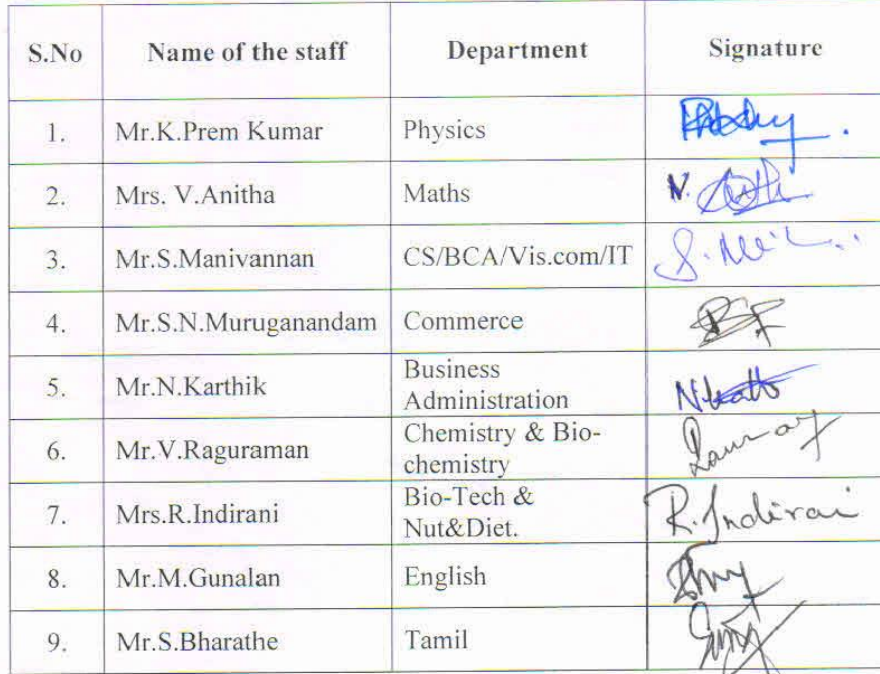 S.No Name of the staff Department Signature
1. Mr.K.Prem Kumar Physics
2. Mrs. V.Anitha Maths
3. Mr.S.Manivannan CS/BCA/Vis.com/IT
4. Mr.S.N.Muruganandam Commerce
5. Mr.N.Karthik Business
Administration
6. Mr.V.Raguraman Chemistry & Bio-
chemistry
7. Mrs.R.Indirani Bio-Tech & R.Indirani
Nut&Diet.
8. Mr.M.Gunalan English
9. Mr.S.Bharathe Tamil